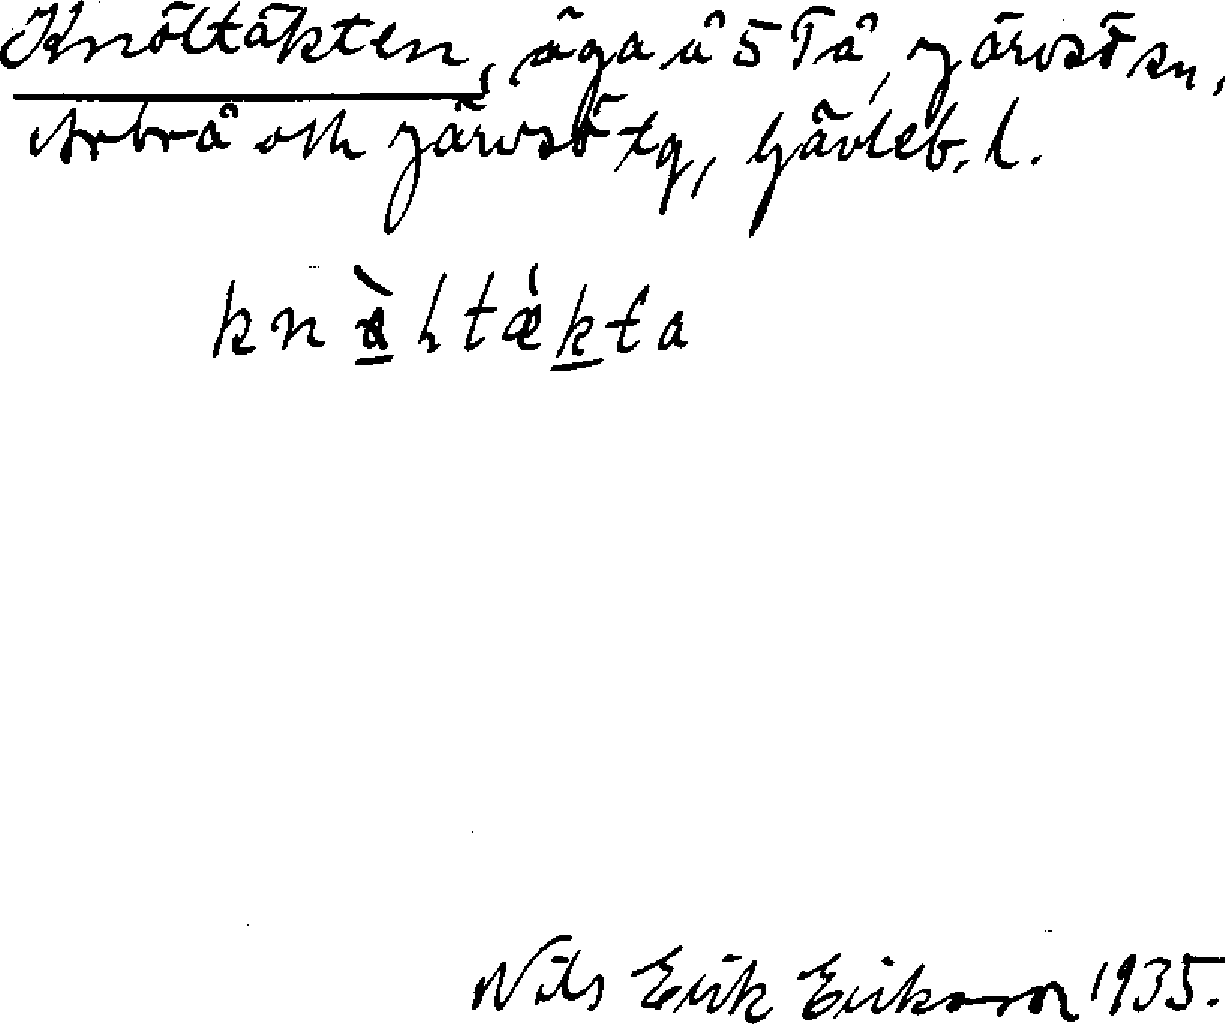 Knöltäkten, äga å 5 Tå, Järvsö sn,
Arbrå och Järvsö tg, Gävleb. l.
knàltǽkta
Nils Erik Erikson 1935.